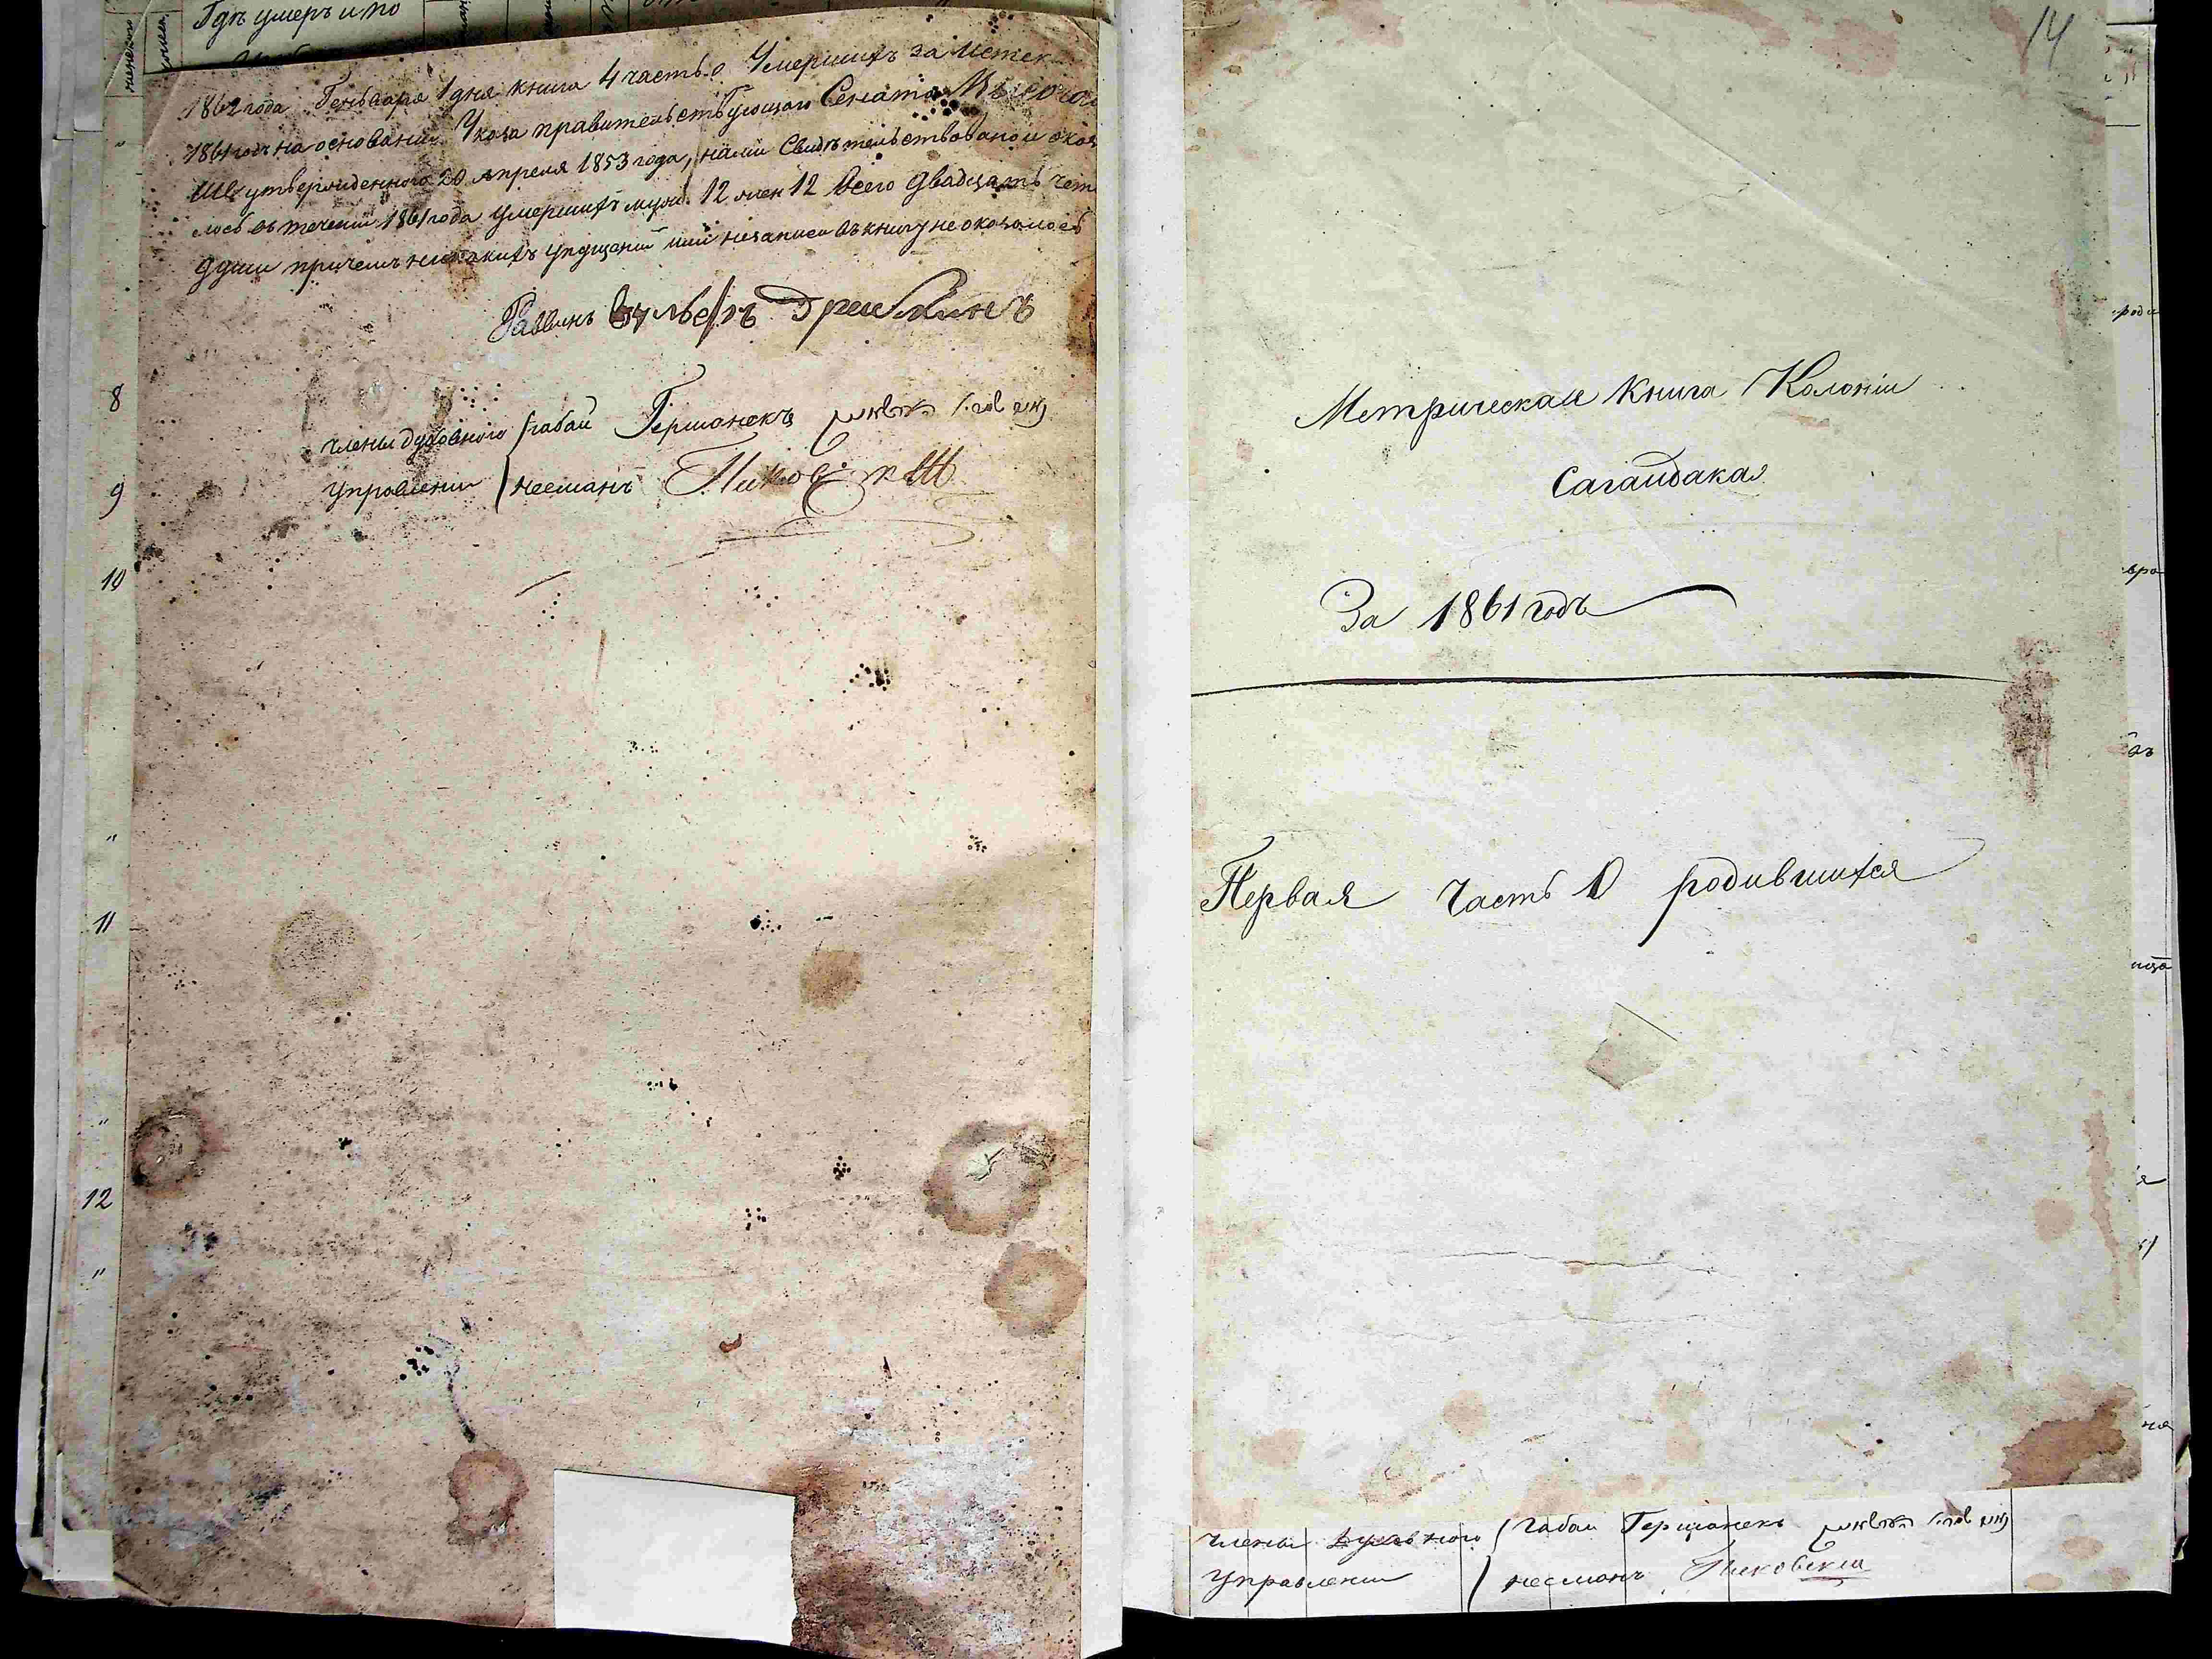 Гдѣ умеръ и по
1862 года Геньваря 1 дня книга 4 часть о Умершихъ за истек
1861 годъ на основании Указа правительствующаго Сената Высоча
ше утвержденного 20 апреля 1853 года, нами Свидѣтельствовано и оказа
лось въ течении 1861 года умершихъ муж. 12 жен 12 всего двадцать чет
души причемъ никакихъ упущений или незаписи въ книгу не оказалось
Раввинъ
8
члены духовного габай Гершонекъ
9
управления нееманъ Пиковский
10
"
11
"
12
"
14
Метрическая Книга Колоніи
Сагайдака
За 1861 годъ
Первая Часть О родившихся
члены духовного габаи Гершонекъ
управлении неемонъ Пиковский